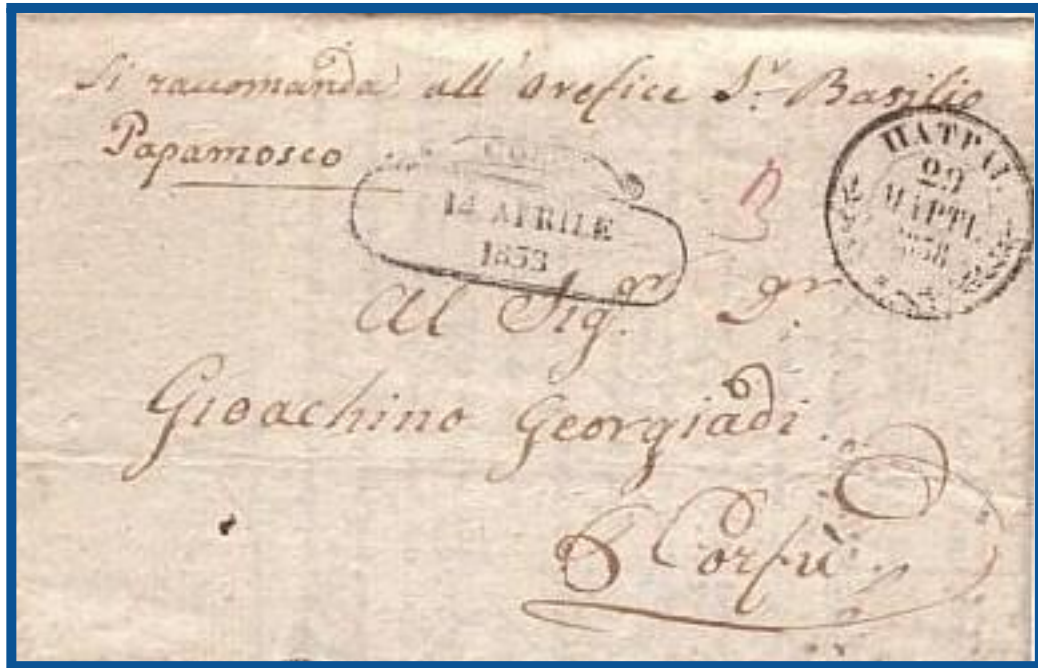 Si raccomanda all'orefice S.r Basilio
Papamosco
14 APRILE
1838
ΠΑΤΡΑΙ.
29
ΜΑΡΤΙ.
1838
Al Sig.r
Gioachino Georgiadi.
Corfù